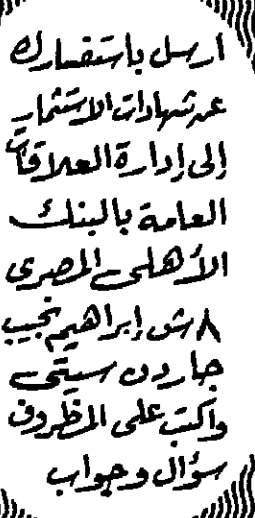 ارسل باستفسارك
عن شهادات الاستثمار
إلى إدارة العلاقات
العامة بالبنك
الأهلى المصرى
٨ ش إبراهيم نجيب
جاردن سيتى
واكتب على المظروف
سؤال وجواب